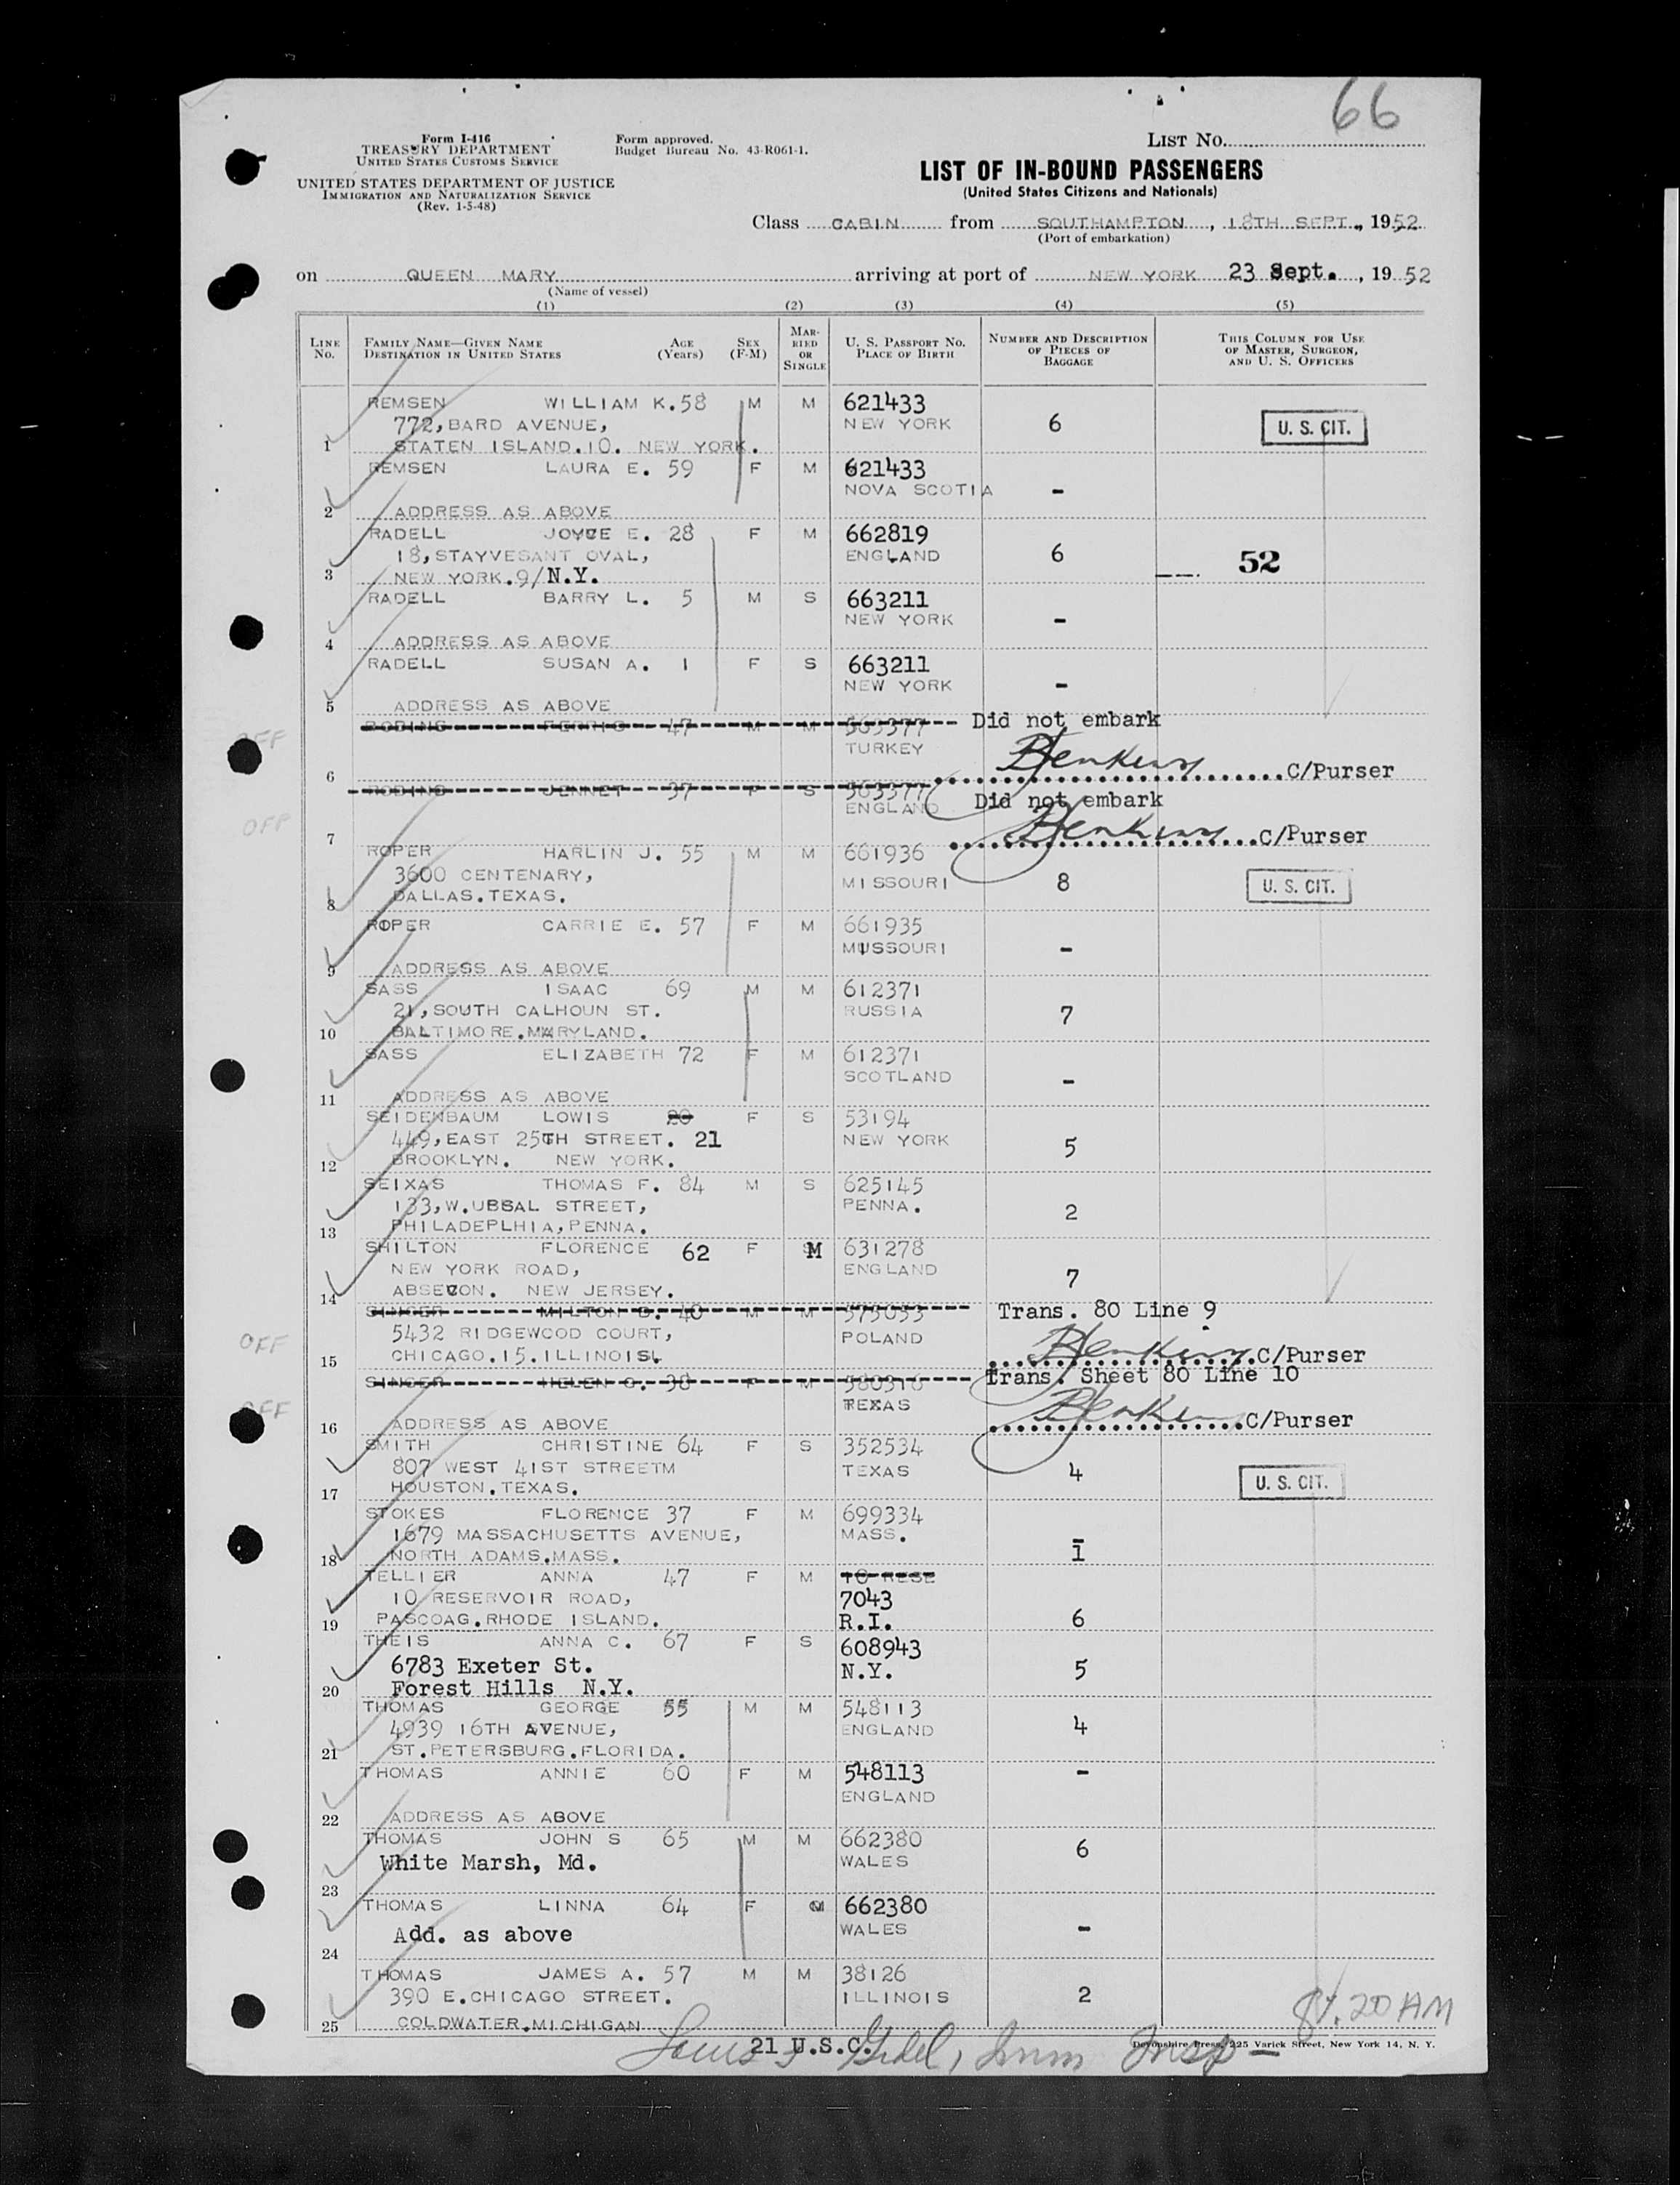 66
Form I-416
TREASURY DEPARTMENT
UNITED STATES CUSTOMS SERVICE
UNITED STATES DEPARTMENT OF JUSTICE
IMMIGRATION AND NATURALIZATION SERVICE
(Rev. 1-5-48)
Form approved.
Budget Bureau No. 43-R061-1.
LIST NO.
LIST OF IN-BOUND PASSENGERS
(United States Citizens and Nationals)
Class CABIN from SOUTHAMPTON, 18TH SEPT., 1952
(Port of embarkation)
on QUEEN MARY arriving at port of NEW YORK 23 Sept., 1952
(Name of vessel)
(1) (2) (3) (4) (5)
LINE NO. FAMILY NAME—GIVEN NAME DESTINATION IN UNITED STATES AGE (Years) SEX (F-M) MARRIED OR SINGLE U. S. PASSPORT NO. PLACE OF BIRTH NUMBER AND DESCRIPTION OF PIECES OF BAGGAGE THIS COLUMN FOR USE OF MASTER, SURGEON, AND U. S. OFFICERS
REMSEN WILLIAM K. 58 M M 621433
772, BARD AVENUE, NEW YORK 6 U. S. CIT.
1 STATEN ISLAND.10. NEW YORK.
REMSEN LAURA E. 59 F M 621433
NOVA SCOTIA -
2 ADDRESS AS ABOVE
RADELL JOYCE E. 28 F M 662819
18, STAYVESANT OVAL, ENGLAND 6 52
3 NEW YORK.9/N.Y.
RADELL BARRY L. 5 M S 663211
NEW YORK -
4 ADDRESS AS ABOVE
RADELL SUSAN A. 1 F S 663211
NEW YORK -
5 ADDRESS AS ABOVE
OFF 47 M M 563377 Did not embark
TURKEY
6 C/Purser
JENNET 37 F S 563377
OFF ENGLAND Did not embark
7 C/Purser
ROPER HARLIN J. 55 M M 661936
3600 CENTENARY, MISSOURI 8 U. S. CIT.
8 DALLAS.TEXAS.
ROPER CARRIE E. 57 F M 661935
MUSSOURI -
9 ADDRESS AS ABOVE
SASS ISAAC 69 M M 612371
21, SOUTH CALHOUN ST. RUSSIA 7
10 BALTIMORE.MARYLAND.
SASS ELIZABETH 72 F M 612371
SCOTLAND -
11 ADDRESS AS ABOVE
SEIDENBAUM LOWIS 20 F S 53194
449, EAST 25TH STREET. 21 NEW YORK 5
12 BROOKLYN. NEW YORK.
SEIXAS THOMAS F. 84 M S 625145
133, W. UPSAL STREET, PENNA. 2
13 PHILADEPLHIA, PENNA.
SHILTON FLORENCE 62 F M 631278
NEW YORK ROAD, ENGLAND 7
14 ABSECON. NEW JERSEY.
SINGER MILTON D. 40 M M 575053 Trans. 80 Line 9
OFF 5432 RIDGEWOOD COURT, POLAND
15 CHICAGO.15.ILLINOIS. C/Purser
SINGER HELEN G. 38 F M 580316 Trans. Sheet 80 Line 10
OFF TEXAS
16 ADDRESS AS ABOVE C/Purser
SMITH CHRISTINE 64 F S 352534
807 WEST 41ST STREETM TEXAS 4 U. S. CIT.
17 HOUSTON.TEXAS.
STOKES FLORENCE 37 F M 699334
1679 MASSACHUSETTS AVENUE, MASS. 1
18 NORTH ADAMS.MASS.
TELLIER ANNA 47 F M
10 RESERVOIR ROAD, 7043
19 PASCOAG.RHODE ISLAND. R.I. 6
THEIS ANNA C. 67 F S 608943
6783 Exeter St. N.Y. 5
20 Forest Hills N.Y.
THOMAS GEORGE 55 M M 548113
4939 16TH AVENUE, ENGLAND 4
21 ST.PETERSBURG.FLORIDA.
THOMAS ANNIE 60 F M 548113 -
ENGLAND
22 ADDRESS AS ABOVE
THOMAS JOHN S 65 M M 662380
White Marsh, Md. WALES 6
23
THOMAS LINNA 64 F M 662380
Add. as above WALES -
24
THOMAS JAMES A. 57 M M 38126
390 E.CHICAGO STREET. ILLINOIS 2
25 COLDWATER.MICHIGAN
21 U.S.C.
Devonshire Press, 225 Varick Street, New York 14, N. Y.